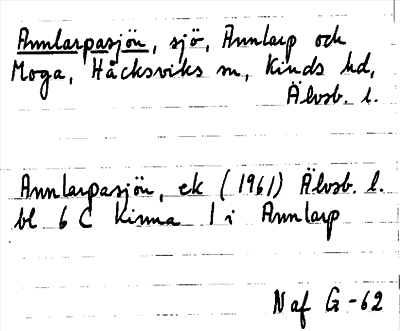 Annlarpasjön, sjö, Annlarp och
Moga, Håcksviks sn, Kinds hd,
Älvsb. l.
Annlarpasjön, ek (1961) Älvsb. l.
bl 6 C Kinna 1 i Annlarp
Naf G-62